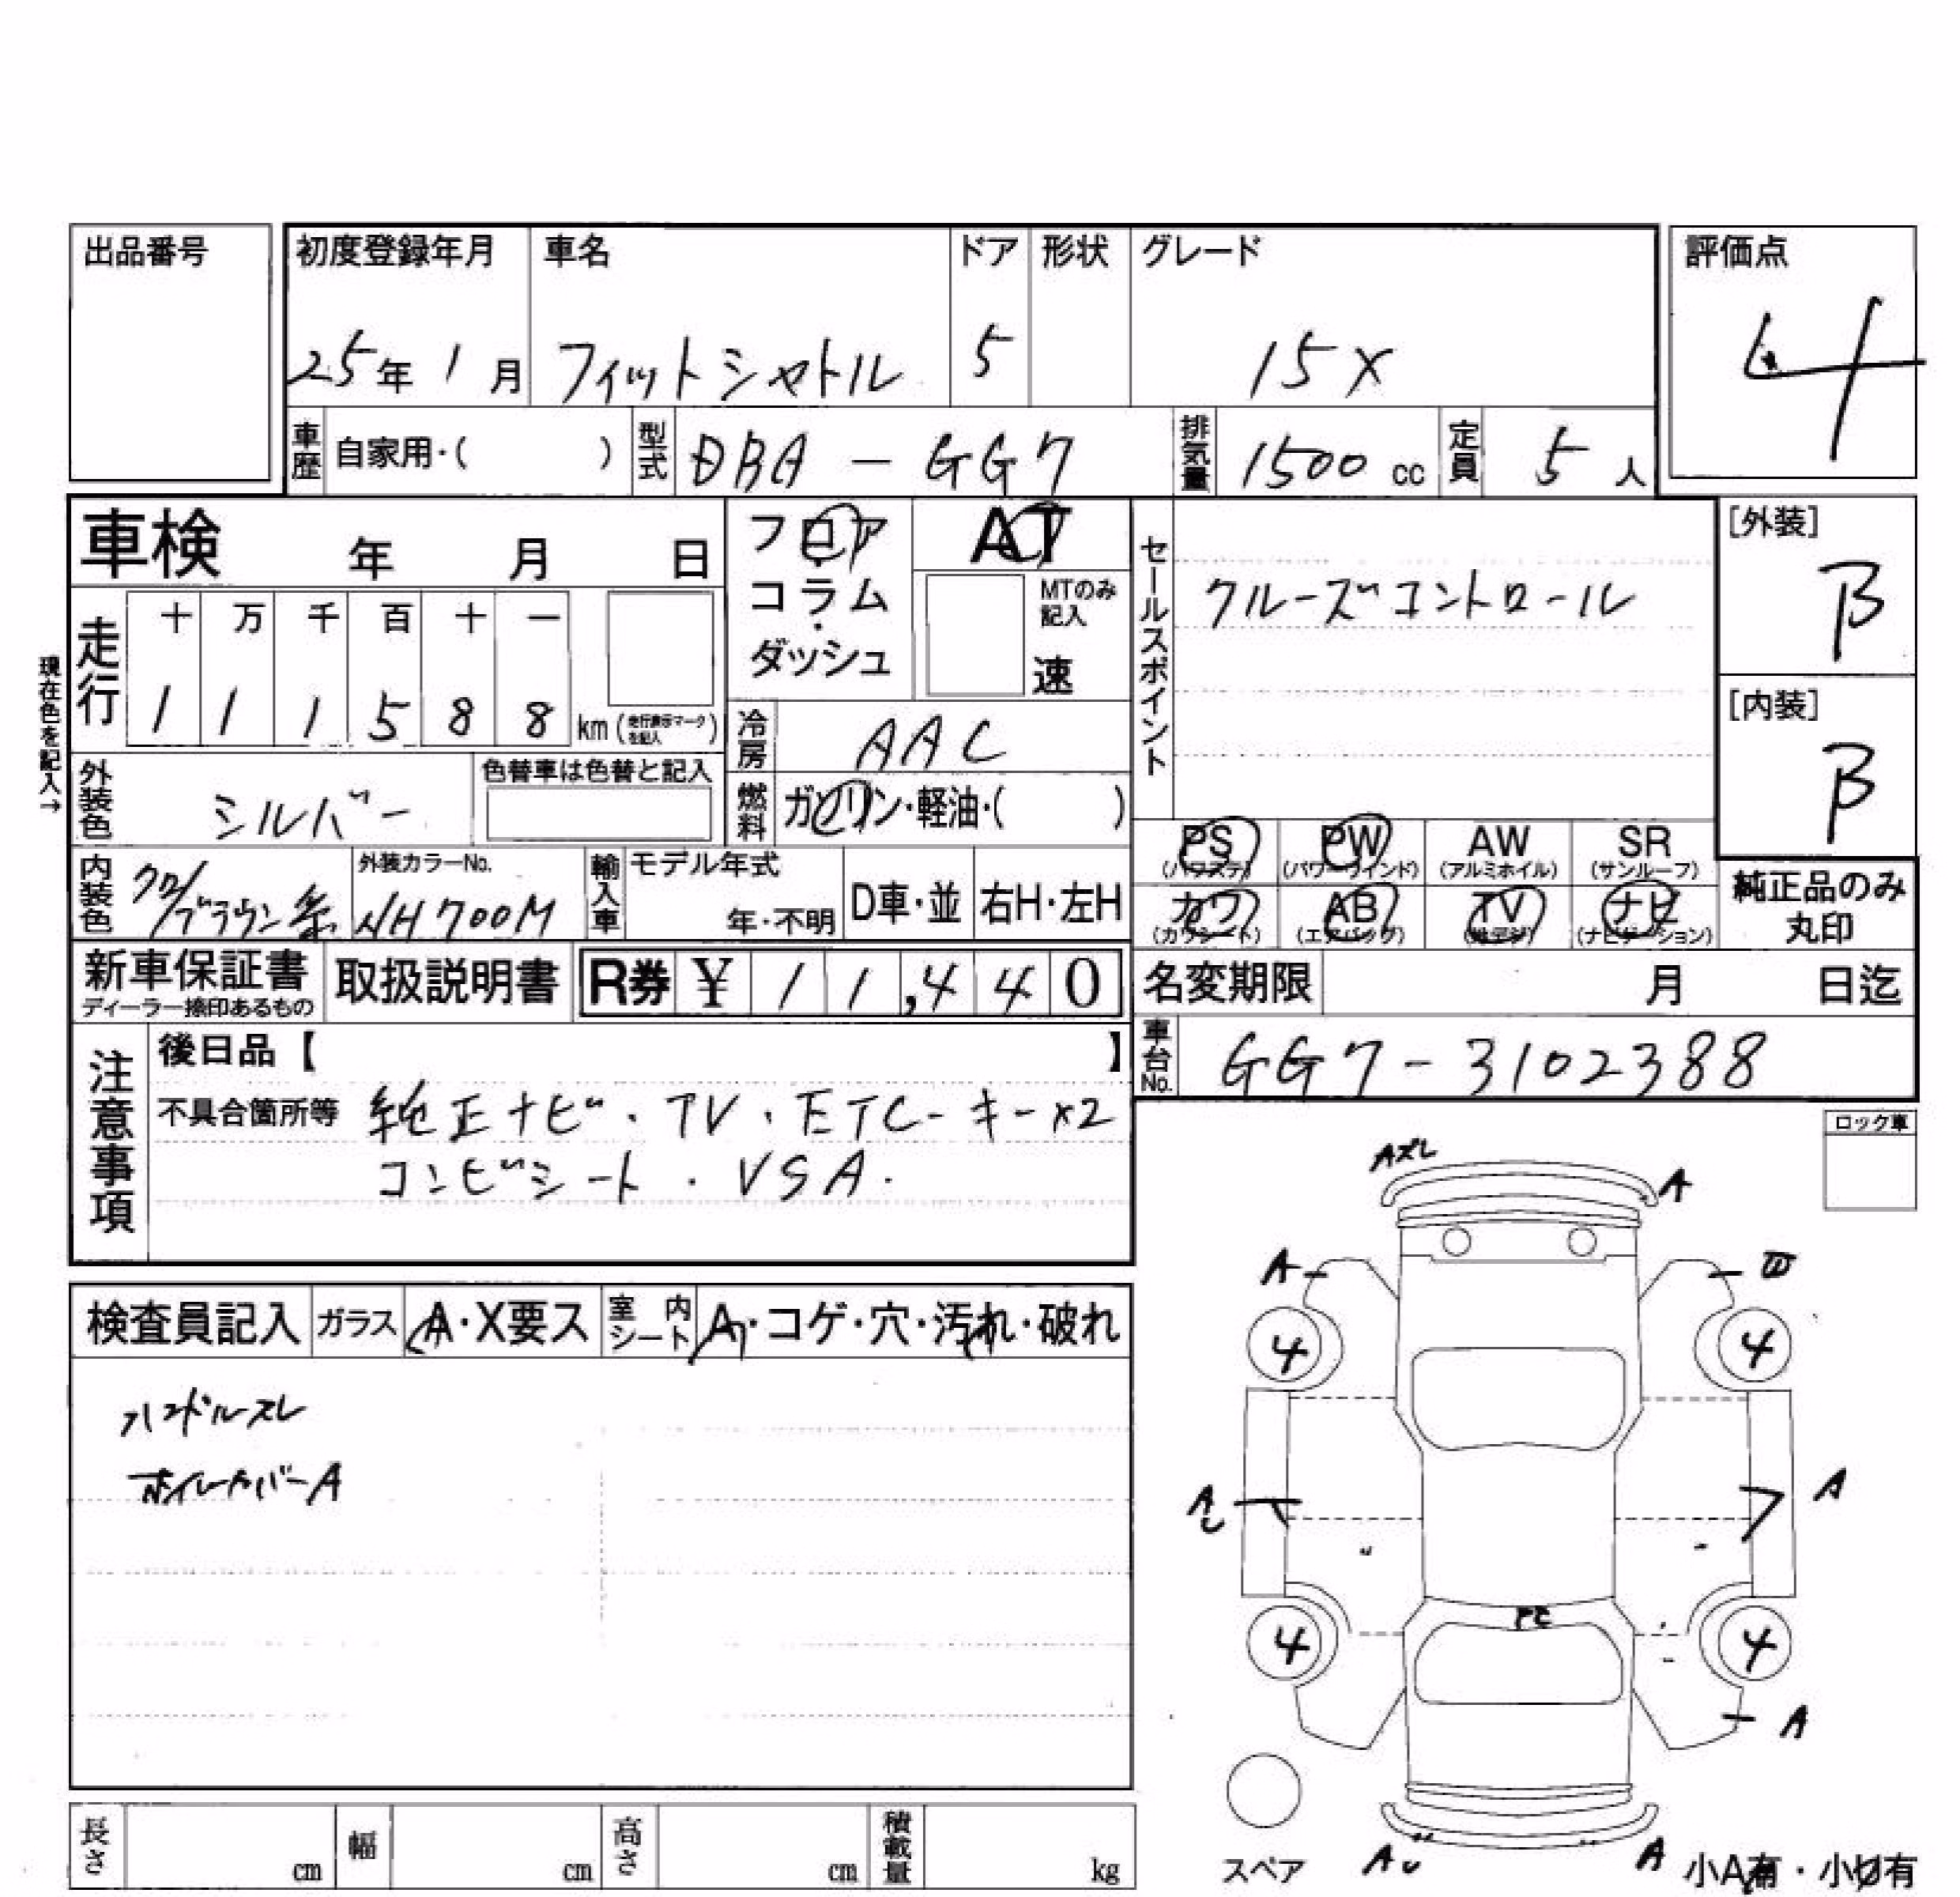 出品番号
初度登録年月 車名 ドア 形状 グレード
25年 1月 フィットシャトル 5 15X
評価点
4
車歴 自家用・( ) 型式 DBA-GG7 排気量 1500cc 定員 5人
車検 年 月 日
フロア
コラム
・
ダッシュ
AT
MTのみ記入
速
セールスポイント
クルーズコントロール
[外装]
B
[内装]
B
現在色を記入→
走行 十 万 千 百 十 一
1 1 1 5 8 8 km (走行表示マークを記入)
冷房 AAC
外装色 シルバー 色替車は色替と記入
燃料 ガソリン・軽油・( )
PS (パワステ) PW (パワーウィンド) AW (アルミホイル) SR (サンルーフ)
カワ (カワシート) AB (エアバッグ) TV (地デジ) ナビ (ナビゲーション)
純正品のみ
丸印
内装色 クロ/ブラウン系 外装カラーNo. NH700M
輸入車 モデル年式 年・不明 D車・並 右H・左H
新車保証書
ディーラー捺印あるもの
取扱説明書 R券 ¥ 11,440
名変期限 月 日迄
車台No. GG7-3102388
注意事項
後日品【 】
不具合箇所等 純正ナビ・TV・ETC-キー×2
コンビシート・VSA.
ロック車
検査員記入 ガラス A・X要ス 室内シート A・コゲ・穴・汚れ・破れ
ハンドルスレ
ホイルカバーA
Aズレ
A
A
4
4
A
A
4
4
A
A
A
スペア
小A有・小U有
長さ cm 幅 cm 高さ cm 積載量 kg